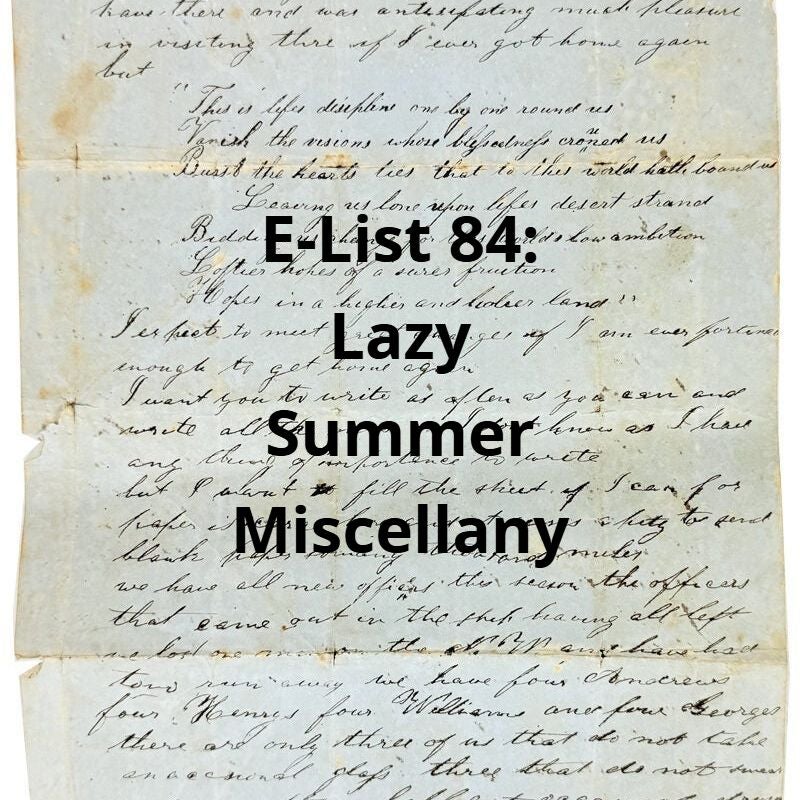 have there and was anticipating much pleasure
in visiting thre if I ever got home again
but
"This is lifes disipline one by one round us
Vanish the visions whose blessedness croned us
Burst the hearts ties that to this world hath bound us
Leaving us lone upon lifes desert strand
E-List 84:
Bidding us for this worlds low ambition
Loftier hopes of a surer fruition
Hopes in a higher and holier land"
Lazy
I expect to meet changes if I am ever fortunate
enough to get home again
I want you to write as often as you can and
Summer
write all I dont know as I have
any thing of importance to write
but I want to fill the sheet if I can for
Miscellany
paper is a pity to send
blank paper miles
we have all new officers this season the officers
that came out in the ship having all left
we lost one man on the N W and have had
two run away we have four Andrews
four Henrys four Williams and four Georges
there are only three of us that do not take
an occasional glass three that do not swear